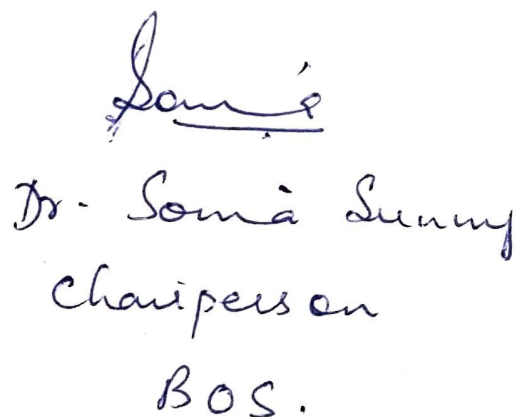 Sonia
Dr. Sonia Sunny
Chairperson
BOS.